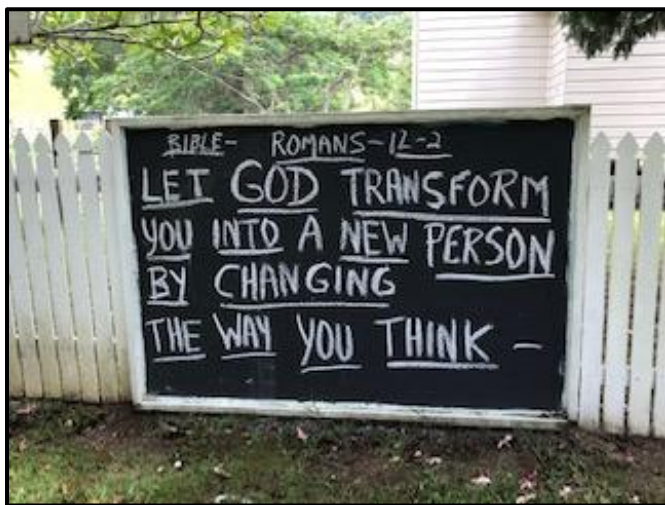 BIBLE- ROMANS-12-2
LET GOD TRANSFORM
YOU INTO A NEW PERSON
BY CHANGING
THE WAY YOU THINK -